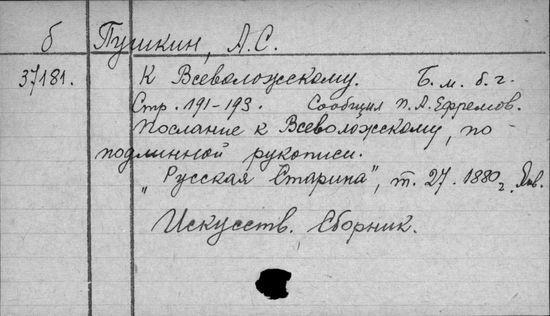 б Пушкин, А.С.
37181. К Всеволожскому. Б. м. б. г.
Стр. 191-193. Сообщил П. А. Ефремов.
Послание к Всеволожскому, по
подлинной рукописи.
"Русская Старина", т. 27. 1880 г. Янв.
Искусств. Сборник.